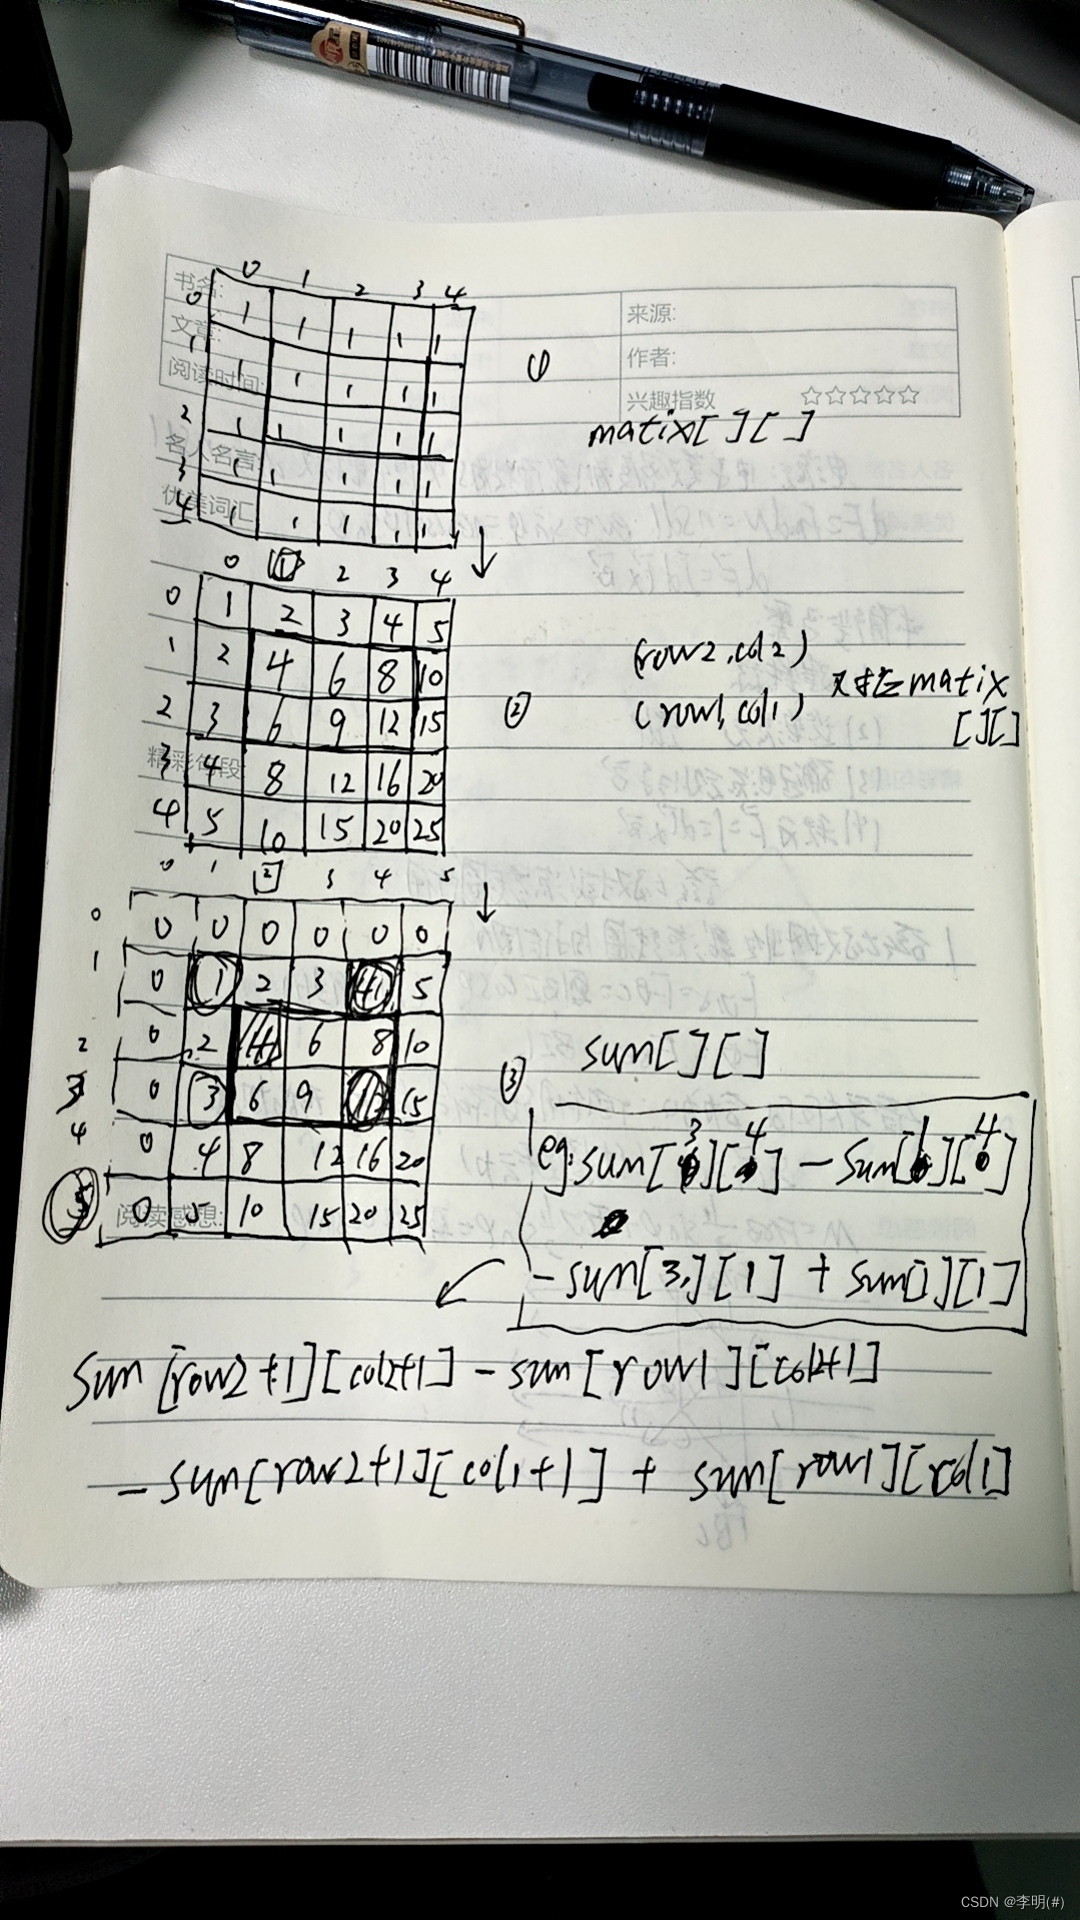 书名:
来源:
文章:
作者:
阅读时间:
兴趣指数 ☆☆☆☆☆
名人名言:
优美词汇
0 1 2 3 4
0 1 1 1 1 1
1 1 1 1 1 1
2 1 1 1 1 1
3 1 1 1 1 1
4 1 1 1 1 1
①
matix[ ][ ]
↓
0 1 2 3 4
0 1 2 3 4 5
1 2 4 6 8 10
2 3 6 9 12 15
3 4 8 12 16 20
4 5 10 15 20 25
精彩句段
②
(row2,col2)
(row1,col1) 对应matix
[ ][ ]
↓
0 1 2 3 4 5
0 0 0 0 0 0 0
1 0 1 2 3 4 5
2 0 2 4 6 8 10
3 0 3 6 9 12 15
4 0 4 8 12 16 20
5 0 5 10 15 20 25
阅读感想:
③
sum[ ][ ]
eg: sum[3][4] - sum[1][4]
- sum[3,][1] + sum[1][1]
sum[row2+1][col2+1] - sum[row1][col2+1]
- sum[row2+1][col1+1] + sum[row1][col1]
CSDN @李明(#)